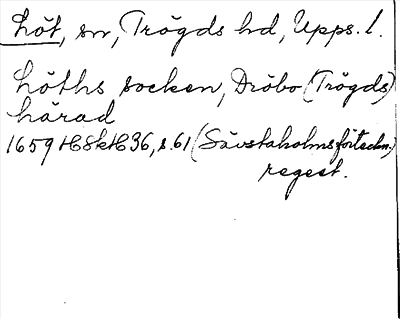 Löt, sn, Trögds hd, Upps. l.
Löths socken, Dröbo (Trögds)
härad
1659 HSkH 36, s. 61 (Sävstaholmsförteckn.)
regest.